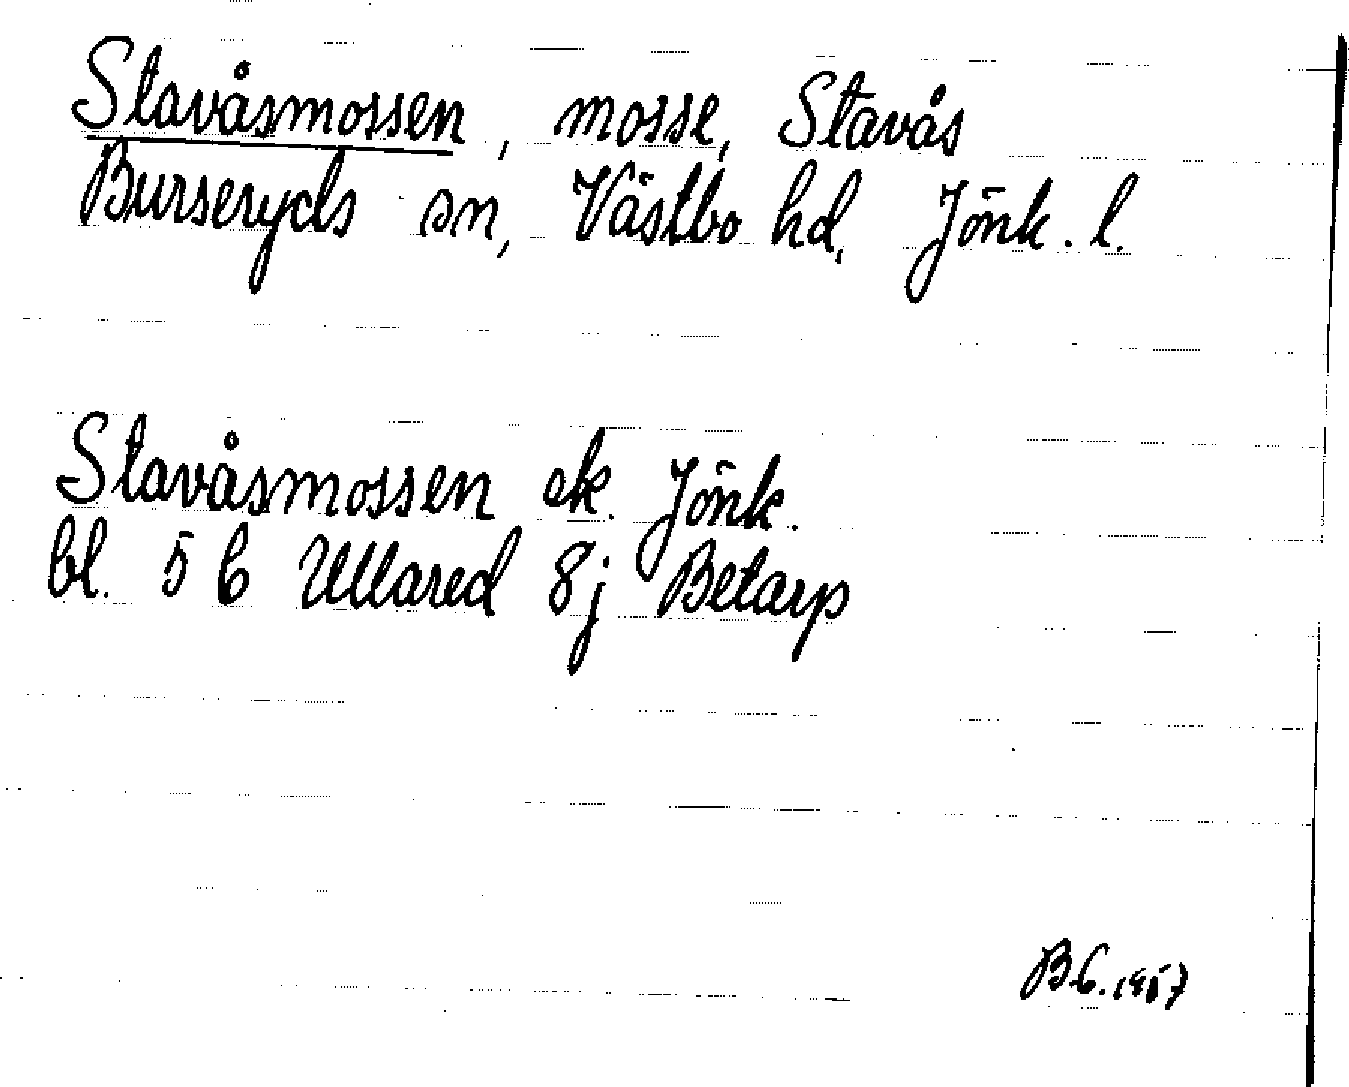 Stavåsmossen, mosse, Stavås
Burseryds sn, Västbo hd, Jönk. l.
Stavåsmossen ek. Jönk.
bl. 5 C Ullared 8j Betarp